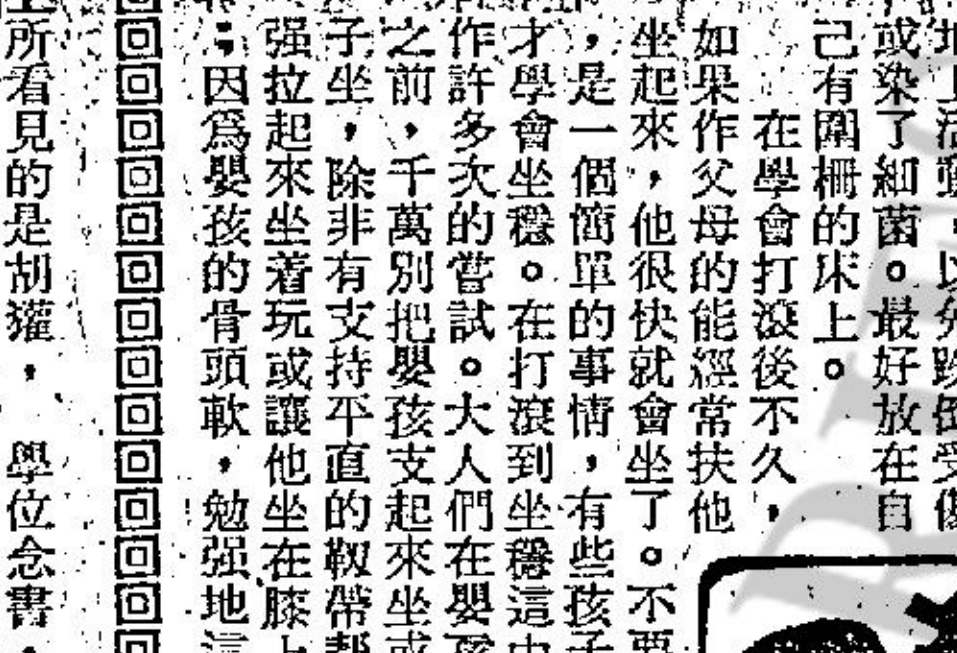 地上活動。以免跌倒受傷
或染了細菌。最好放在自
己有圍柵的床上。
在學會打滾後不久，
如果作父母的能經常扶他
坐起來，他很快就會坐了。不要
，是一個簡單的事情，有些孩子
才學會坐穩。在打滾到坐穩這中
作許多次的嘗試。大人們在嬰孩
之前，千萬別把嬰孩支起來坐或
子坐，除非有支持平直的靱帶幫
强拉起來坐着玩或讓他坐在膝上
；因爲嬰孩的骨頭軟，勉强地這
所看見的是胡獾，學位念書，